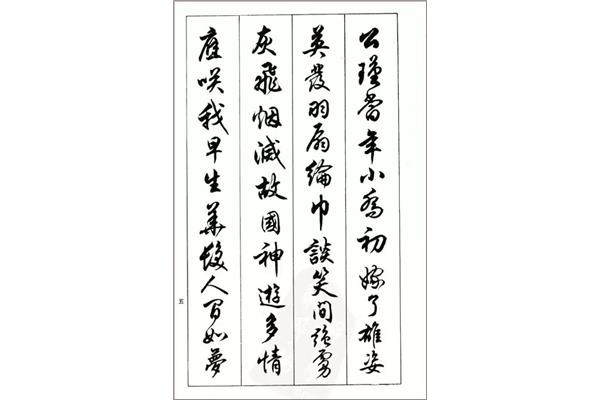 公瑾當年小喬初嫁了雄姿
英發羽扇綸巾談笑間强虜
灰飛烟滅故國神遊多情
應咲我早生華髮人間如夢
五